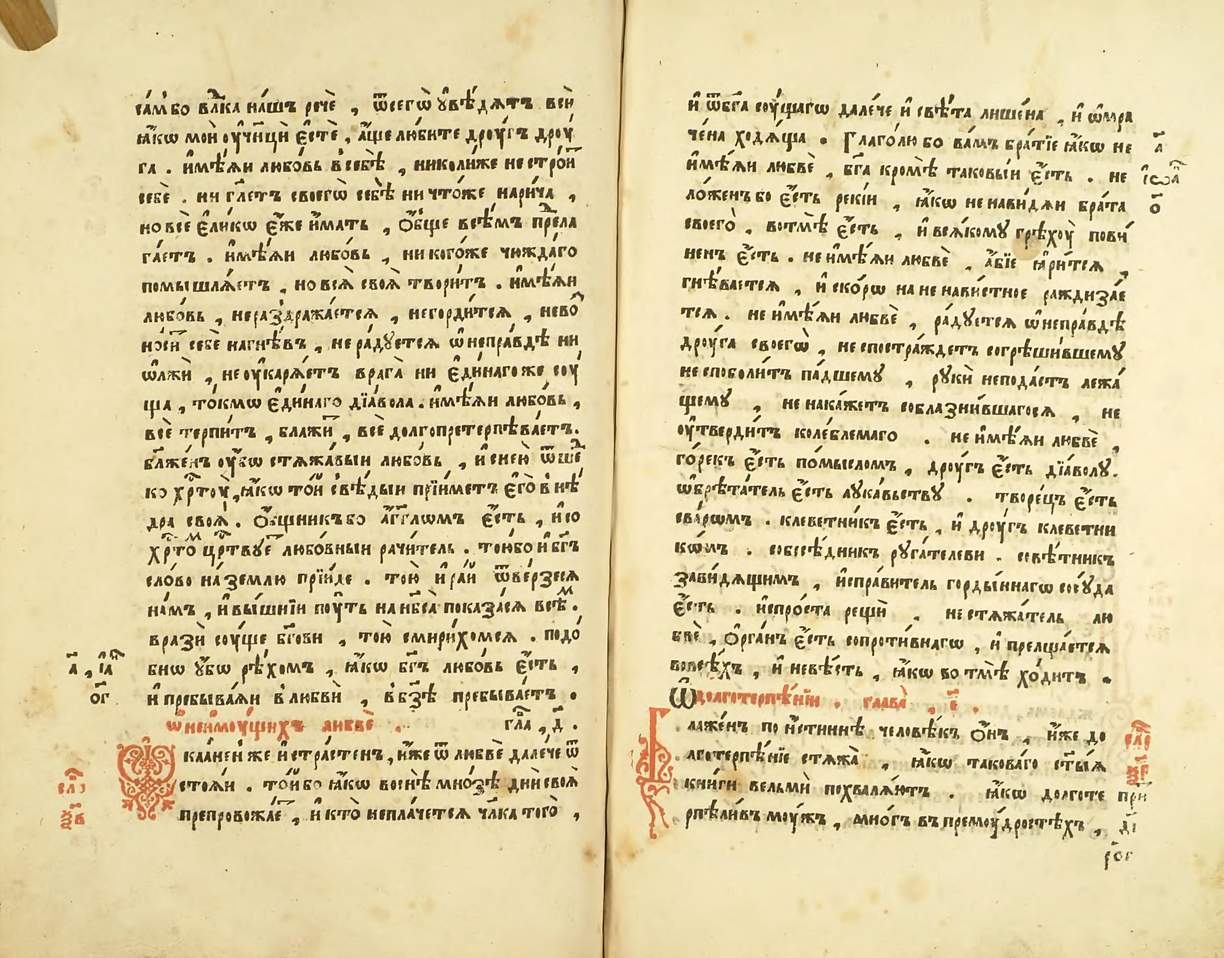 са́мбо влⷣка на́шъ речѐ , ѿсегѡ̀ ᲂу҆вѣ́дѧтъ всѝ
ꙗ҆́кѡ моѝ оу҆чн҃цѝ є҆стѐ , а҆́ще любите дроу́гъ дроу́
га . и҆мѣ́ѧи любо́вь в̾себѣ̀ , николи́же не строи́т
себѐ . ни гл҃етъ своегѡ̀ себѣ̀ ни что́же нарича̀ ,
но всѐ є҆ли́кѡ є҆́же и҆́мать , ѻ҆́бще всѣ́мъ прⷣела
га́етъ . и҆мѣ́ѧи любо́вь , ни кого́же чюжда́го
помышлѧ́етъ , но всѧ̀ своѧ̀ твори́тъ . и҆мѣ́ѧи
любо́вь , нераздража́етсѧ , негорди́тсѧ , нево
но́ситⷭ себѐ нагнѣ́въ , не ра́дꙋетсѧ ѡ҆непра́вдѣ ни
ѡ҆лжѝ , не оу҆карѧ́етъ врага̀ ни є҆ди́наго же соу́
ща , то́кмѡ є҆ди́наго дїа́вола . и҆мѣ́ѧи любо́вь ,
всѐ терпи́тъ , блажи́т , всѐ долгопретерпѣва́етъ .
бл҃же́нъ оу҆́бѡ стѧжа́выи любо́вь , и҆ снею̀ ѿшеⷣ
ко хрⷭ҇тоу̀ , ꙗ҆́кѡ то́и свѣ́дыи прїи́метъ є҆го̀ в̾нѣ́
дра своѧ̀ . ѻ҆́бщникъ бо а҆́гг҃лѡмъ є҆́сть , и҆ со
хрⷭ҇тоⷨ црⷭ҇твꙋеⷮ любо́вныи рачи́тель . то́юбо и҆ бг҃ъ
сло́во на́ землю прїи́де . то́ю и҆ ра́й ѿве́рзесѧ
на́мъ , и҆ вы́шнїи поу́ть на нб҃еса̀ показа́сѧ всѣⷨ .
вразѝ соу́ще бг҃ови , то́ю смири́хомсѧ . подо́
бнѡ ᲂу҆́бѡ рѣ́хомъ , ꙗ҆́кѡ бг҃ъ любо́вь є҆́сть ,
и҆ пребыва́ѧи в̾ любвѝ , в̾ бз҃ѣ пребыва́етъ .
ѡ҆неимоу́щихъ любвѐ . гла , д҃ .
ка́аненже и҆ стра́стенъ , и҆́же ѿ любвѐ дале́че ѿ
стоѧ́и . то́и бо ꙗ҆́кѡ во снѣ̀ мно́зѣ дни своѧ̀
препровожа́еⷮ , и҆ кто̀ непла́четсѧ чл҃ка того̀ ,
а҃ , їѡа
ог҃
сло
и҆ ѿбг҃а соу́щагѡ дале́че и҆ свѣ́та лише́на , и҆ ѡ҆мра
че́на ходѧ́ща . Глаго́лю бо ва́мъ бра́тїе ꙗ҆́кѡ не
и҆мѣ́ѧи любвѐ , бг҃а кромѣ̀ таковы́и є҆́сть . не
ло́женъ бо є҆́сть реки́и , ꙗ҆́кѡ не нави́дѧи бра́та
своего̀ , во тмѣ̀ є҆́сть , и҆ всѧ́кому грѣхоу̀ пови́
ненъ є҆́сть . не и҆мѣ́ѧи любвѐ , а҆́бїе ꙗ҆ри́тсѧ ,
гнѣ́ваетсѧ , и҆ ско́рѡ на не нави́стное ражⷣдиза́е
тсѧ . не и҆мѣ́ѧи любвѐ , ра́дꙋетсѧ ѡ҆непра́вдѣ
дроу́га своегѡ̀ , не спостра́ждетъ согрѣши́вшемꙋ
не сподо́литъ па́дшемꙋ , рꙋкѝ непода́стъ лежа́
щемꙋ , не нака́жетъ соблазни́вшагосѧ , не
оу҆тверди́тъ коле́блемаго . не и҆мѣ́ѧи любвѐ ,
го́рекъ є҆́сть по́мысломъ , дроу́гъ є҆́сть дїа́волꙋ .
ѡ҆брѣта́тель є҆́сть лꙋка́вьствꙋ . творе́цъ є҆́сть
сва́рѡмъ . клеветни́къ є҆́сть , и҆ дроу́гъ клеветни
кѡ́мъ . собесѣ́дникъ рꙋга́телеви . совѣ́тникъ
зави́дѧщимъ , и҆спра́витель горды́ннагѡ сосꙋда
є҆́сть . и҆ про́ста рещѝ . не стѧжа́тель лю
бвѐ , ѻ҆рга́нъ є҆́сть сопроти́внагѡ , и҆ прельща́етсѧ
вовсѣ́хъ , и҆ невѣ́сть , ꙗ҆́кѡ во тмѣ̀ хо́дитъ .
ѿ долготерпѣ́нїи . глава̀ , е҃ .
лаже́нъ по и҆́стиннѣ человѣ́къ ѻ҆́нъ , и҆́же до
лготерпѣ́нїе стѧжа̀ , ꙗ҆́кѡ такова́го ст҃ы́ѧ
кни́ги вельмѝ похвалѧ́ютъ . ꙗ҆́кѡ долготе
рпѣли́въ моу́жъ , мно́гъ въ премоу́дростѣхъ ,
а҃
їѡа
о҃
сло
при